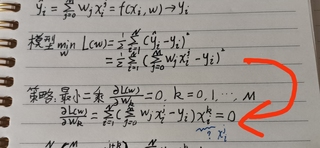 ŷᵢ = Σⱼ₌₀ᴹ wⱼ xᵢʲ = f(xᵢ, w) → yᵢ
模型: min_w L(w) = ½ Σᵢ₌₁ᴺ (ŷᵢ - yᵢ)²
= ½ Σᵢ₌₁ᴺ (Σⱼ₌₀ᴹ wⱼ xᵢʲ - yᵢ)²
策略: 最小二乘 ∂L(w)/∂wₖ = 0, k = 0, 1, ... M
∂L(w)/∂wₖ = Σᵢ₌₁ᴺ (Σⱼ₌₀ᴹ wⱼ xᵢʲ - yᵢ) xᵢᵏ = 0
? xᵢʲ